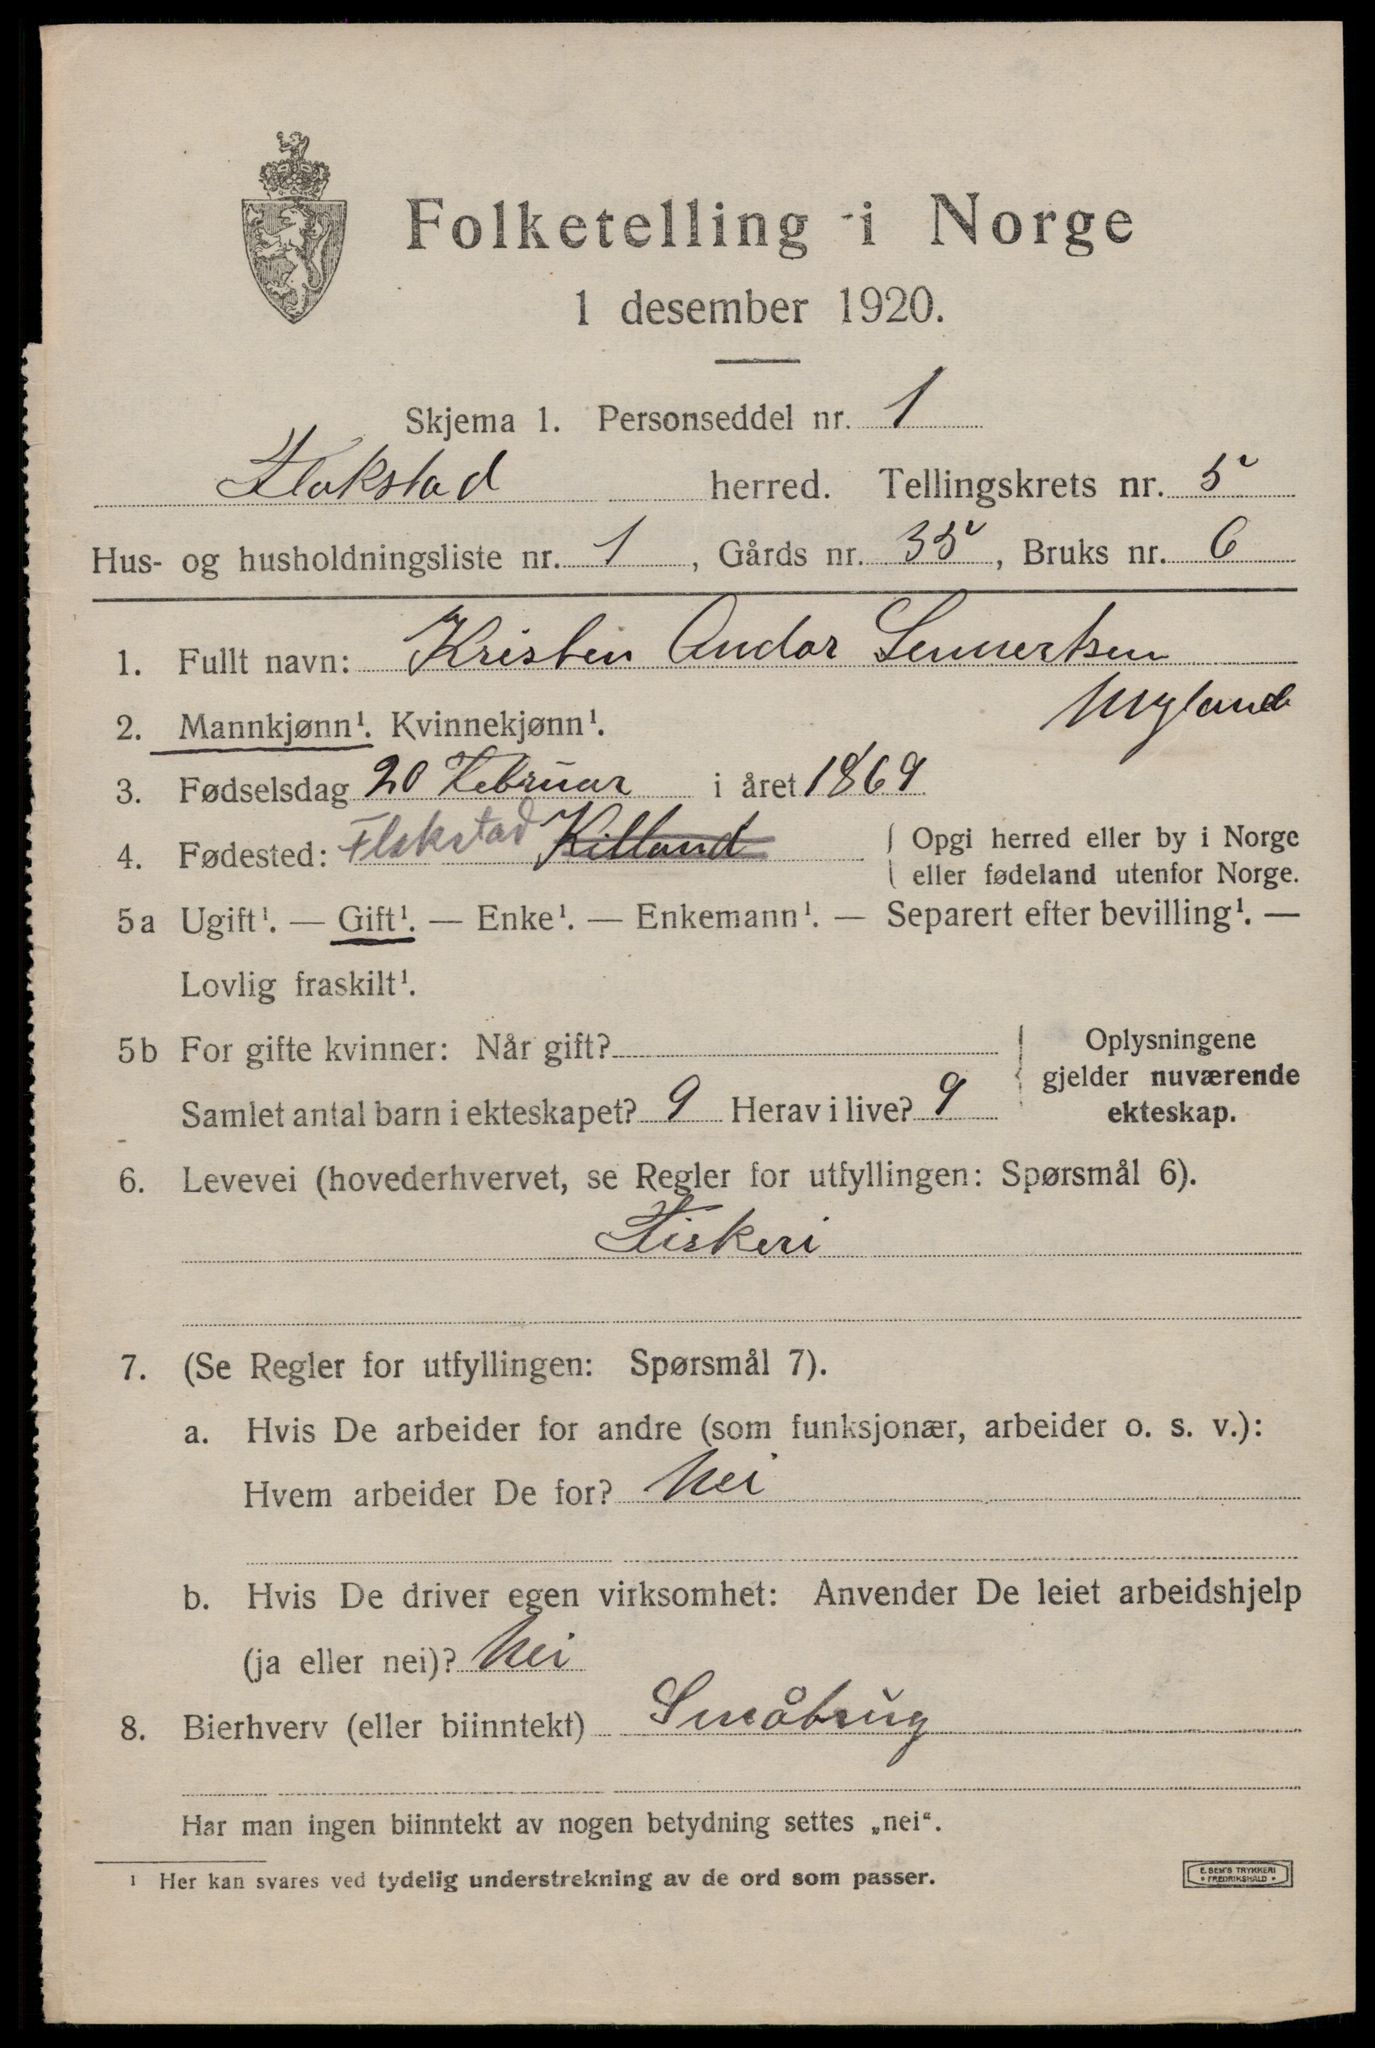 Folketelling i Norge
1 desember 1920.
Skjema 1. Personseddel nr. 1
Flakstad herred. Tellingskrets nr. 5
Hus- og husholdningsliste nr. 1, Gårds nr. 35, Bruks nr. 6
1. Fullt navn: Kristen Andor Lennertsen
Nyland
2. Mannkjønn¹. Kvinnekjønn¹.
3. Fødselsdag 20 Februar i året 1869
4. Fødested: Flakstad Killand { Opgi herred eller by i Norge
eller fødeland utenfor Norge.
5a Ugift¹. — Gift¹. — Enke¹. — Enkemann¹. — Separert efter bevilling¹. —
Lovlig fraskilt¹.
5b For gifte kvinner: Når gift?
Samlet antal barn i ekteskapet? 9 Herav i live? 9
{ Oplysningene
gjelder nuværende
ekteskap.
6. Levevei (hovederhvervet, se Regler for utfyllingen: Spørsmål 6).
Fiskeri
7. (Se Regler for utfyllingen: Spørsmål 7).
a. Hvis De arbeider for andre (som funksjonær, arbeider o. s. v.):
Hvem arbeider De for? Nei
b. Hvis De driver egen virksomhet: Anvender De leiet arbeidshjelp
(ja eller nei)? Nei
8. Bierhverv (eller biinntekt) Småbrug
Har man ingen biinntekt av nogen betydning settes „nei“.
¹ Her kan svares ved tydelig understrekning av de ord som passer.
E. SEM'S TRYKKERI
• FREDRIKSHALD •